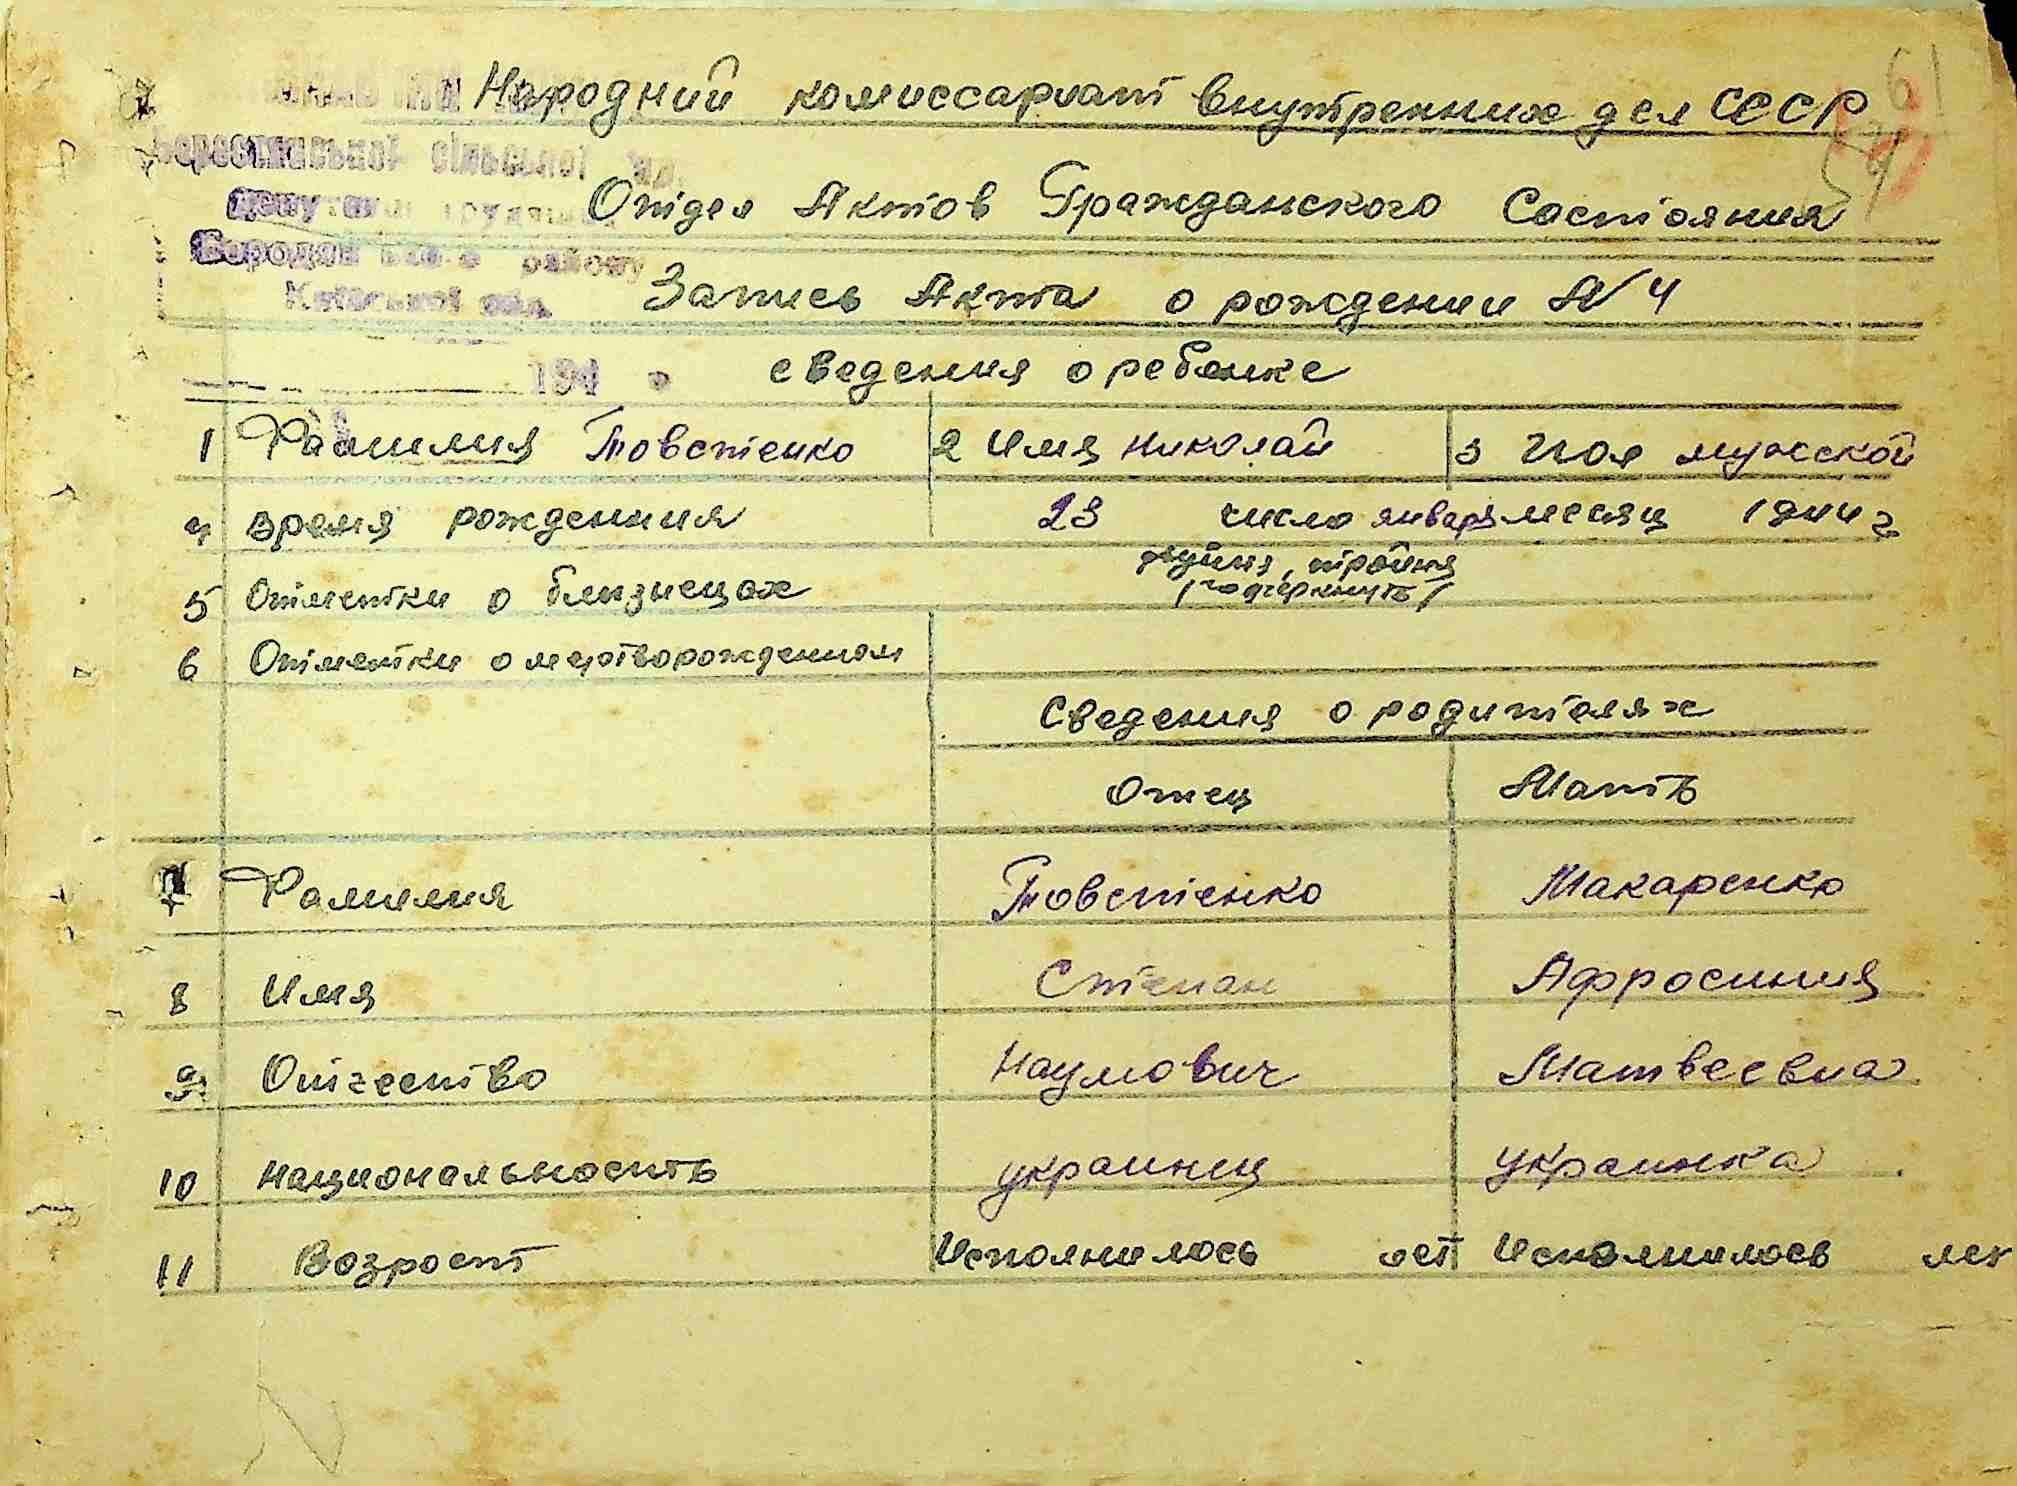 Народний комиссариат внутренних дел СССР
61
59
сільської
Отдел Актов Гражданского Состояния
району
Київської обл.
Запись Акта о рождении N 4
194 р
сведения о ребенке
1 Фамилия Товстенко 2 Имя Николай 3 Пол мужской
4 время рождениия 23 число январь месяц 1944 г
5 Отметки о близнецах двойня, тройня
/подчеркнуть/
6 Отметки о мертворожденном
Сведения о родителях
Отец Мать
7 Фамилия Товстенко Макаренко
8 Имя Степан Афросиния
9 Отчество Наумович Матвеевна
10 национальность украинец украинка
11 Возрост Исполнилось лет Исполнилось лет